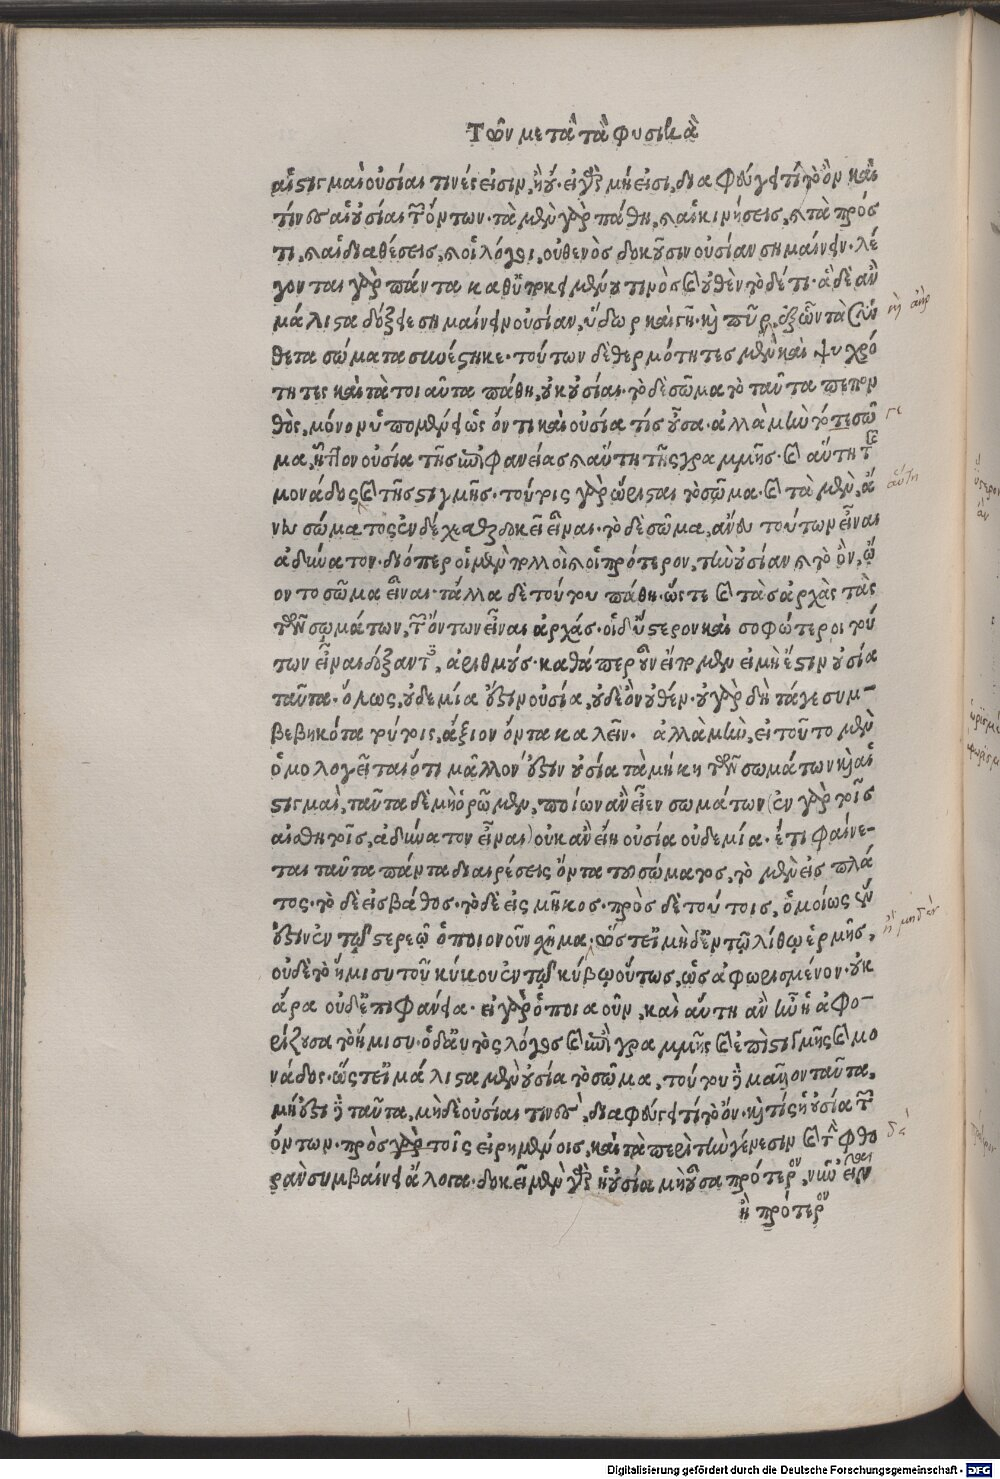 Τῶν μετὰ τὰ φυσικὰ
αἱ στιγμαὶ οὐσίαι τινές εἰσιν, ἢ οὔ. εἰ γὰρ μή εἰσι, διαφεύγει τί τὸ ὂν καὶ
τίνες αἱ οὐσίαι τῶν ὄντων. τὰ μὲν γὰρ πάθη, καὶ αἱ κινήσεις, καὶ τὰ πρός
τι, καὶ αἱ διαθέσεις, καὶ οἱ λόγοι, οὐθενὸς δοκοῦσιν οὐσίαν σημαίνειν. λέ
γονται γὰρ πάντα καθ' ὑποκειμένου τινὸς καὶ οὐθὲν τόδέ τι. ἃ δὲ ἂν
μάλιστα δόξειε σημαίνειν οὐσίαν, ὕδωρ καὶ γῆ. καὶ πῦρ, ἐξ ὧν τὰ σύν
θετα σώματα συνέστηκε. τούτων δὲ θερμότητες μὲν καὶ ψυχρό
τητες καὶ τὰ τοιαῦτα πάθη, οὐκ οὐσίαι. τὸ δὲ σῶμα τὸ ταῦτα πεπον
θὸς, μόνον ὑπομένει ὡς ὄν τι καὶ οὐσία τίς οὖσα. ἀλλὰ μὴν τότε σῶ
μα, ἧττον οὐσία τῆς ἐπιφανείας καὶ αὕτη τῆς γραμμῆς. καὶ αὕτη τῆς
μονάδος καὶ τῆς στιγμῆς. τούτοις γὰρ ὥρισται τὸ σῶμα. καὶ τὰ μὲν, ἄ
νευ σώματος ἐνδέχεσθαι δοκεῖ εἶναι. τὸ δὲ σῶμα, ἄνευ τούτων εἶναι
ἀδύνατον. διόπερ οἱ μὲν πολλοὶ καὶ οἱ πρότερον, τὴν οὐσίαν καὶ τὸ ὂν, ᾤ
οντο σῶμα εἶναι. τἆλλα δὲ τούτου πάθη. ὥστε καὶ τὰς ἀρχὰς τὰς
τῶν σωμάτων, τῶν ὄντων εἶναι ἀρχάς. οἱ δ' ὕστερον καὶ σοφώτεροι τού
των εἶναι δόξαντες, ἀριθμούς. καθάπερ οὖν εἴπομεν εἰ μὴ ἔστιν οὐσία
ταῦτα. ὅλως, οὐδεμία ἐστὶν οὐσία, οὐδὲ ὂν οὐθέν. οὐ γὰρ δὴ τά γε συμ-
βεβηκότα τούτοις, ἄξιον ὄντα καλεῖν. ἀλλὰ μὴν, εἰ τοῦτο μὲν
ὁμολογεῖται ὅτι μᾶλλον ἐστὶν οὐσία τὰ μήκη τῶν σωμάτων καὶ αἱ
στιγμαὶ, ταῦτα δὲ μὴ ὁρῶμεν, ποίων ἂν εἶεν σωμάτων (ἐν γὰρ τοῖς
αἰσθητοῖς, ἀδύνατον εἶναι) οὐκ ἂν εἴη οὐσία οὐδεμία. ἔτι φαίνε-
ται ταῦτα πάντα διαιρέσεις ὄντα τοῦ σώματος, τὸ μὲν εἰς πλά
τος. τὸ δὲ εἰς βάθος. τὸ δὲ εἰς μῆκος. πρὸς δὲ τούτοις, ὁμοίως ἔν
ἐστιν ἐν τῷ στερεῷ ὁποιονοῦν σχῆμα. ὥστ' εἰ μὴ δ' ἐν τῷ λίθῳ ἑρμῆς,
οὐδὲ τὸ ἥμισυ τοῦ κύκου ἐν τῷ κύβῳ οὕτως, ὡς ἀφωρισμένον. οὐκ
ἄρα οὐδ' ἐπιφάνεια. εἰ γὰρ ὁποιαοῦν, καὶ αὕτη ἂν ἦν ἡ ἀφο-
ρίζουσα τὸ ἥμισυ. ὁ δ' αὐτὸς λόγος καὶ ἐπὶ γραμμῆς καὶ ἐπὶ στιγμῆς καὶ μο
νάδος. ὥστ' εἰ μάλιστα μὲν οὐσία τὸ σῶμα, τούτου δὲ μᾶλλον ταῦτα,
μὴ ἔστι δὲ ταῦτα, μηδὲ οὐσίαι τινές, διαφεύγει τί τὸ ὄν. καὶ τίς ἡ οὐσία τῶν
ὄντων. πρὸς γὰρ τοῖς εἰρημένοις, καὶ τὰ περὶ τὴν γένεσιν καὶ τὴν φθο
ρὰν συμβαίνει ἄλογα. δοκεῖ μὲν γὰρ ἡ οὐσία μὴ οὖσα πρότερον, νῦν εἶναι
ἢ πρότερον
ἢ ἀὴρ
γε
αὕτη
ἢ μηδὲν
δὲ